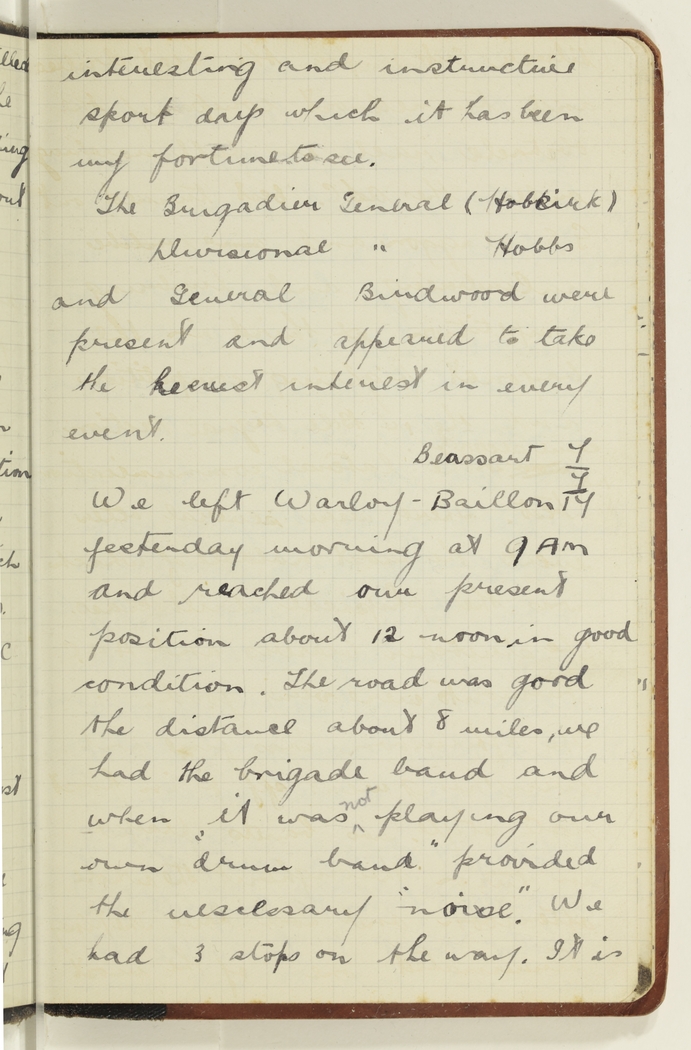 interesting and instructive
sport days which it has been
my fortune to see.
The Brigadier General (Hobkirk)
Divisional " Hobbs
and General Birdwood were
present and appeared to take
the keenest interest in every
event.
Beassart 7
7
17
We left Warloy-Baillon
yesterday morning at 9 AM
and reached our present
position about 12 noon in good
condition. The road was good
the distance about 8 miles, we
had the brigade band and
when it was not playing our
own "drum band" provided
the necessary "noise". We
had 3 stops on the way. It is